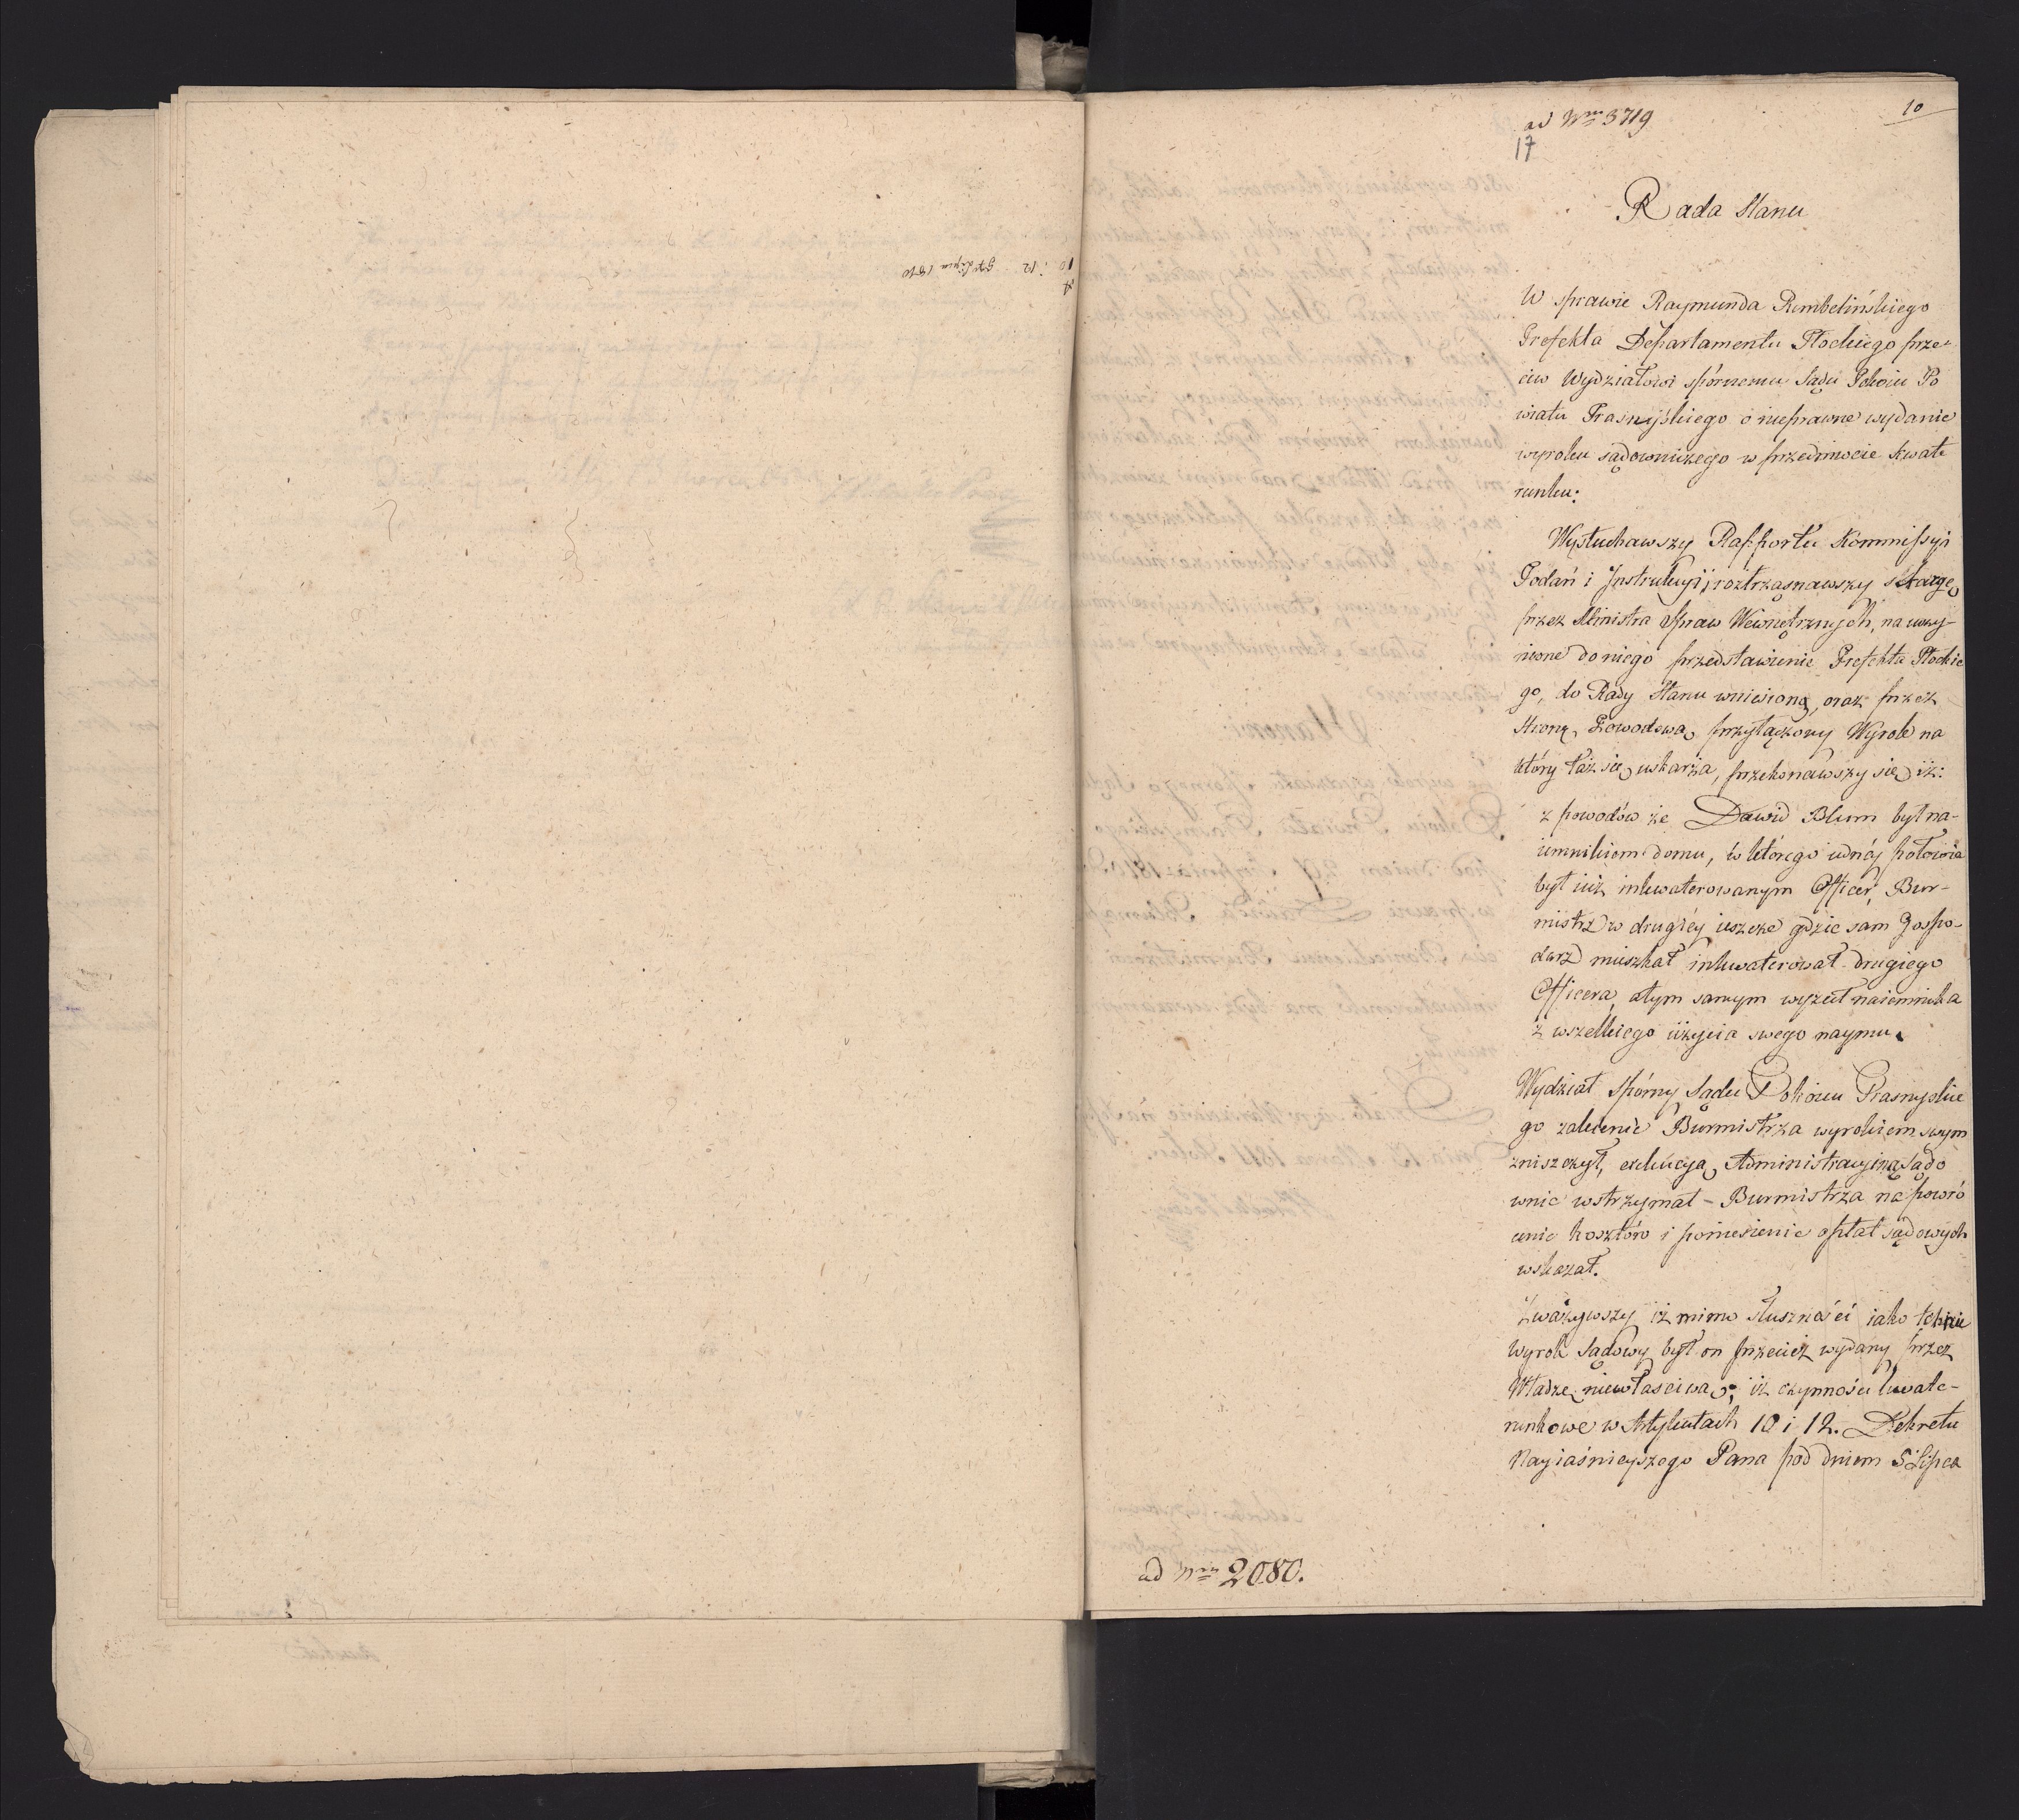 10 i 12 5 Lipca 1810
ad Nrm 3719
10
17
Rada Stanu
W sprawie Raymunda Rembelińskiego
Prefekta Departamentu Płockiego prze-
ciw Wydziałowi spórnemu Sądu Pokoiu Po
wiatu Prasnyskiego o nieprawne wydanie
wyroku sądowniczego w przedmiocie kwate
runku:
Wysłuchawszy Rapportu Kommissyi
Podań i Instrukcyi; roztrząsnąwszy skargę
przez Ministra Spraw Wewnętrznych, na uczy-
nione do niego przedstawienie Prefekta Płockie
go, do Rady Stanu wniesioną, oraz przez
stronę Powodową przyłączony Wyrok na
który taż się uskarża, przekonawszy się iż:
z powodów że Dawid Blum był na-
iemnikiem domu, w którego iednéj połowie
był iuż inkwaterowanym Officer, Bur-
mistrz w drugiéy ieszcze gdzie sam Gospo-
darz mieszkał inkwaterował drugiego
Officera, a tym samym wyzuł naiemnika
z wszelkiego użycia swego naymu.
Wydział spórny Sądu Pokoiu Prasnyskie
go zalecenie Burmistrza wyrokiem swym
zniszczył, exekucyą Administracyiną Sądo
wnie wstrzymał - Burmistrza na powró
cenie kosztów i poniesienie opłat sądowych
wskazał.
Zważywszy iż mimo słuszności iako tchnie
Wyrok Sądowy był on przecież wydany przez
Władzę niewłaściwą; iż czynności kwate-
runkowe w Artykułach 10 i 12. Dekretu
Nayiaśnieyszego Pana pod dniem 5 Lipca
ad Nrm 2080.